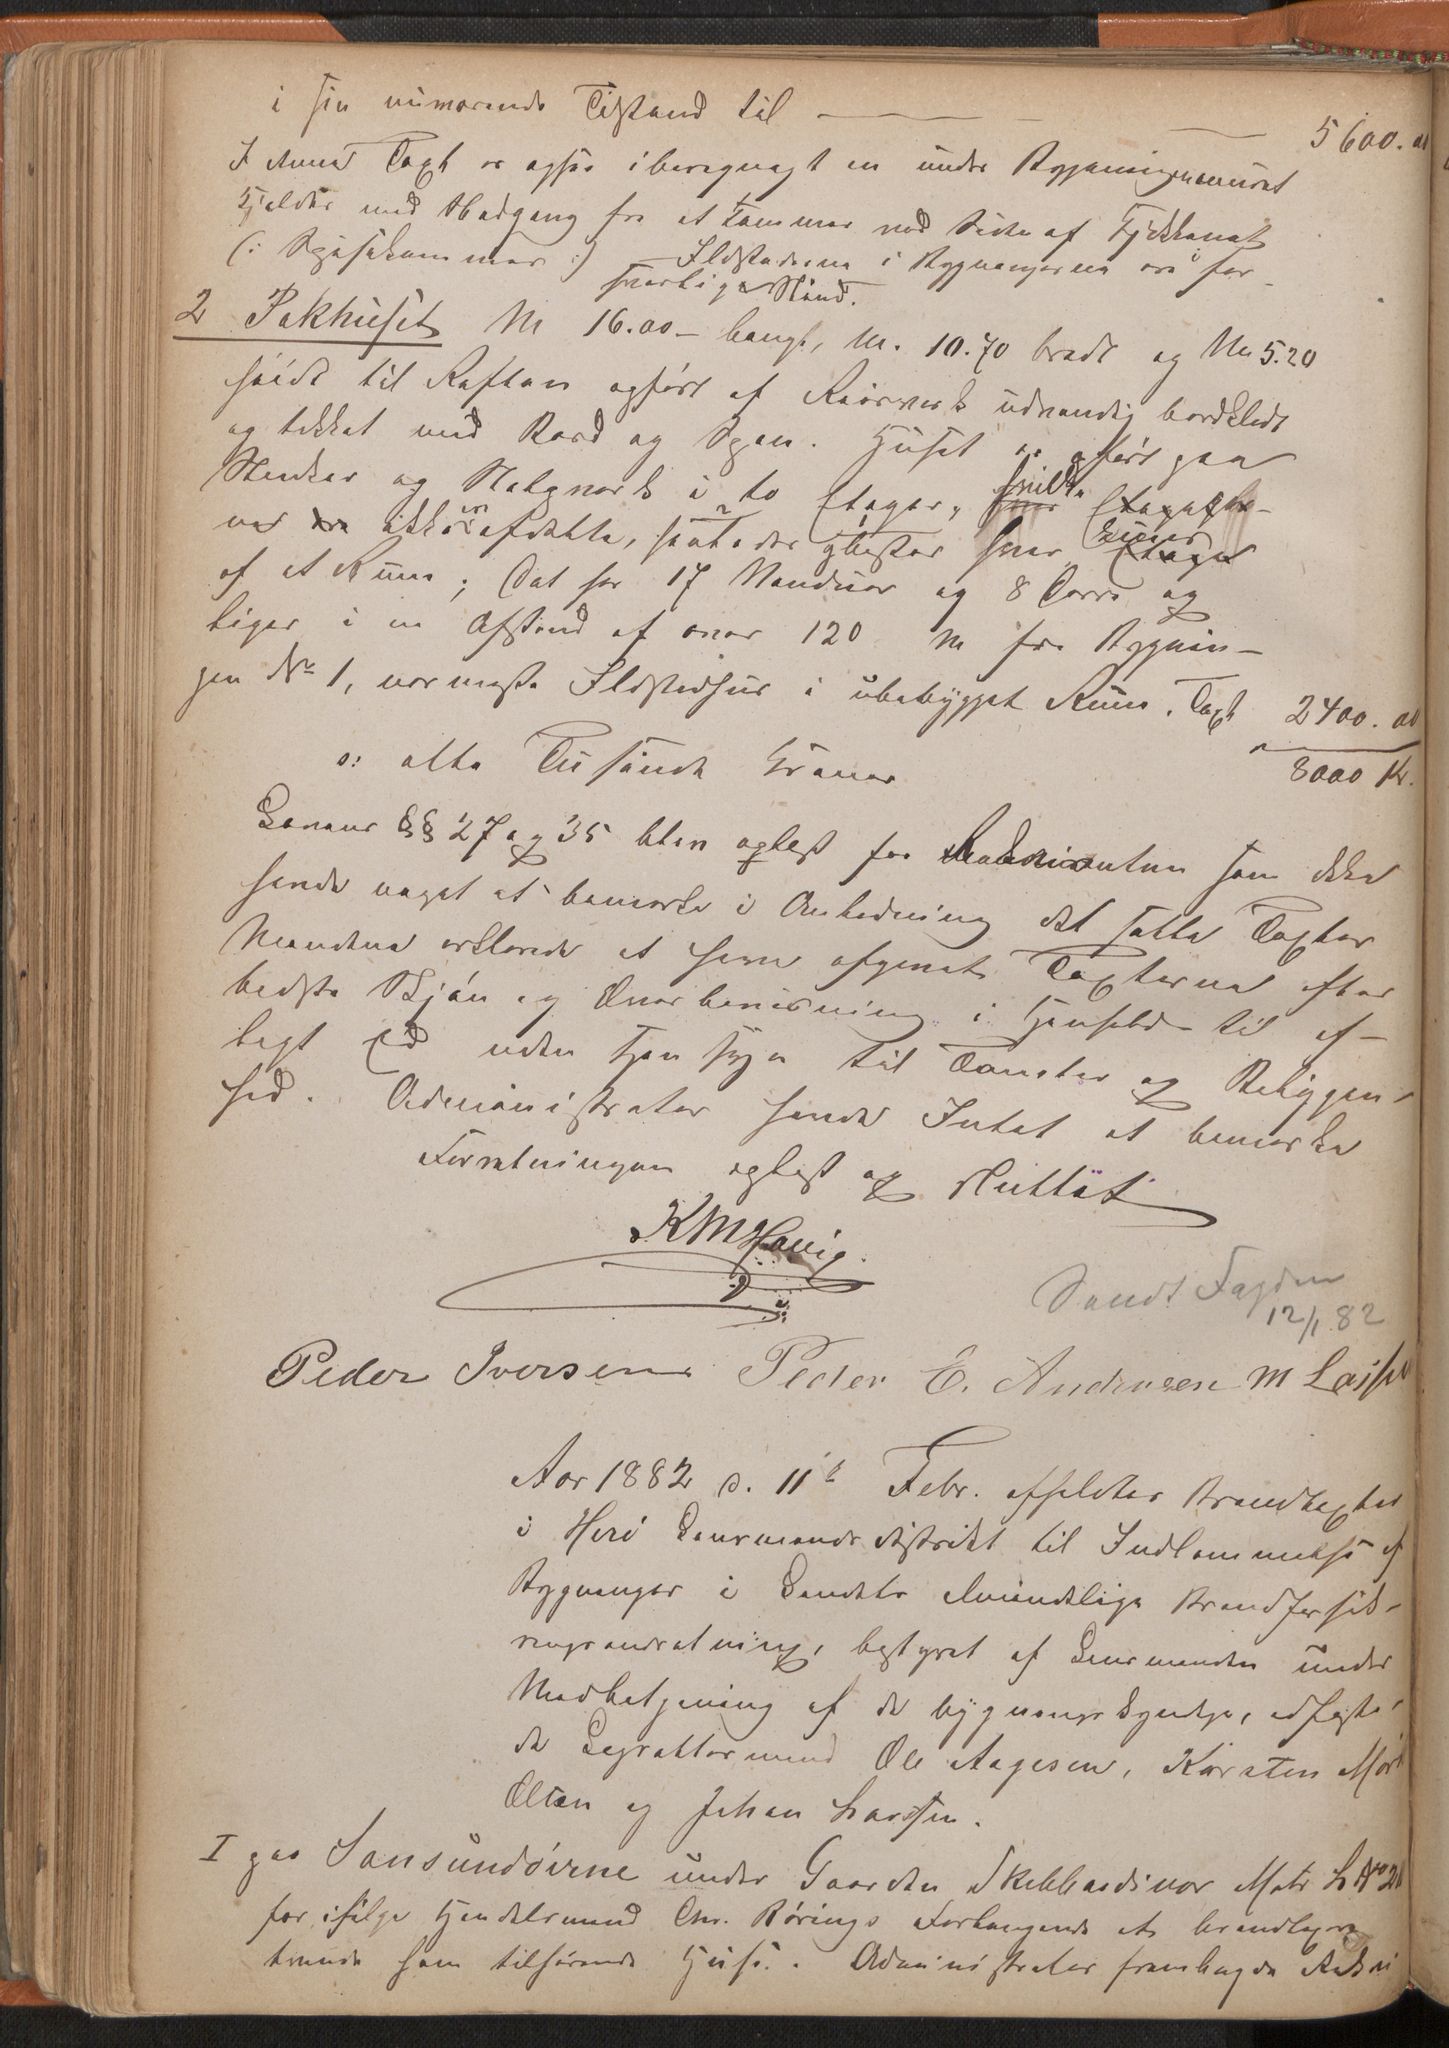 i sin nuværende Tilstand til — 5600.00
I denne Taxt er ogsaa iberegnet en under Bygningen muret
Kjelder med Nedgang fra et Kammer ved Siden af Kjøkkenet
(: Spisekammer :) Ildstederne i Bygningerne ere i for-
svarlig Stand.
2 Pakhuset M 16.00 langt, M. 10.70 bredt og M 5.20
høidt til Raften opført af Reisverk udvendig bordklædt
og tækket med Bord og Spon. Huset er opført paa
Stenkar og i to Etager, hvilke
ikke er afdelte, saa at der hver
af et Rum; Det har 17 Vinduer og 8 Dørre og
ligger i en Afstand af over 120 M fra Bygnin-
gen No 1, nærmeste Ildstedhus i ubebygget Rum. Taxt 2400.00
o: otte Tusinde Kroner 8000 Kr.
Lovens §§ 27 og 35 blev oplæst for Rekvirenten som ikke
havde noget at bemærke i Anledning det satte Taxter
Mændene erklærede at have afgivet Taxterne efter
bedste Skjøn og Overbevisning i Henhold til af-
lagt Ed uden Hensyn til Tomter og Beliggen-
hed. Administrator havde Intet at bemærke
Forretningen oplæst og sluttet
KM Havig
Sendt Fogden
12/1 82
Peder Iversen Peder E. Andersen M
Aar 1882 d. 11te Febr. afholdtes Brandtaxter
i Herø Lensmandsdistrikt til Indlemmelse af
Bygninger i Landets almindelige Brandforsik-
ringsindretning, bestyret af Lensmanden under
Medbetjening af de bygningskyndige, edfæste-
de Lagrettesmænd Ole Aagesen, Karsten
Olsen og Johan Larssen.
I paa Sansundøerne under Gaarden Matr L No
for ifølge Handelsmand Chr. Börings Forlangende at brandtaxere
hvende ham tilhørende Huse. Administrator fremlagde Rekvi